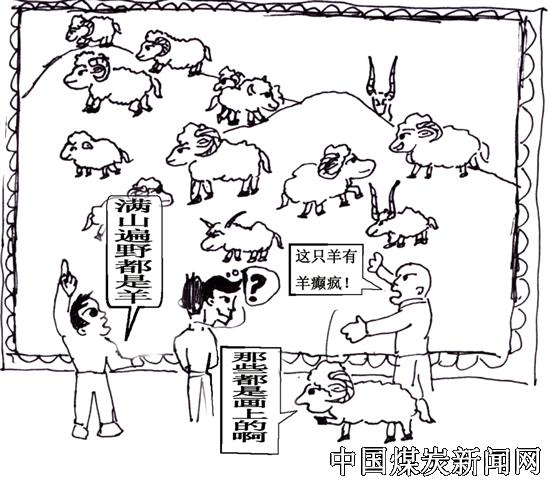 满山遍野都是羊
?
这只羊有
羊癫疯！
那些都是画上的啊
中国煤炭新闻网